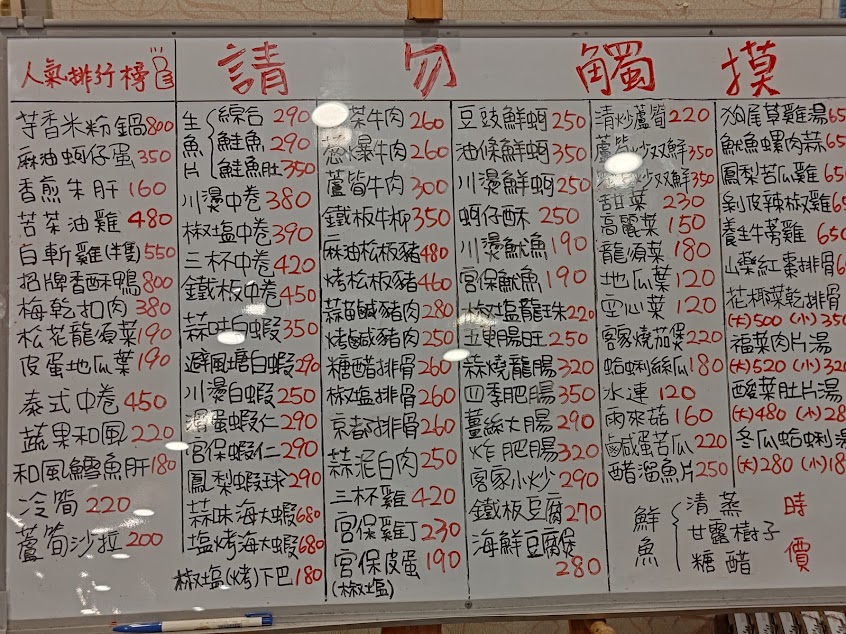 請勿觸摸
人氣排行榜
芋香米粉鍋800
麻油蚵仔蛋350
香煎朱肝160
苦茶油雞480
白斬雞(半隻)550
招牌香酥鴨800
梅乾扣肉380
松花龍須菜190
皮蛋地瓜葉190
泰式中卷450
蔬果和風220
和風鱈魚肝180
冷筍220
蘆筍沙拉200
生魚片
綜合290
鮭魚290
鮭魚肚350
川燙中卷380
椒塩中卷390
三杯中卷420
鐵板中卷450
蒜味白蝦350
避風塘白蝦290
川燙白蝦250
滑蛋蝦仁290
宮保蝦仁290
鳳梨蝦球290
蒜味海大蝦680
塩烤海大蝦680
椒塩(烤)下巴180
茶牛肉260
蔥爆牛肉260
蘆筍牛肉300
鐵板牛柳350
麻油松板豬480
烤松板豬460
蒜苗鹹豬肉280
烤鹹豬肉250
糖醋排骨260
椒塩排骨260
京都排骨260
蒜泥白肉250
三杯雞420
宮保雞丁230
宮保皮蛋190
(椒塩)
豆豉鮮蚵250
油條鮮蚵350
川燙鮮蚵250
蚵仔酥250
川燙魷魚190
宮保魷魚190
椒塩龍珠220
五更腸旺250
蒜燒龍腸320
四季肥腸350
薑絲大腸290
炸肥腸320
客家小炒290
鐵板豆腐270
海鮮豆腐煲280
清炒蘆筍220
蘆筍炒双鮮350
炒双鮮350
甜豆菜230
高麗菜150
龍須菜180
地瓜葉120
空心菜120
客家燒茄煲220
蛤蜊絲瓜180
水連120
雨來菇160
鹹蛋苦瓜220
醋溜魚片250
狗尾草雞湯65
魷魚螺肉蒜65
鳳梨苦瓜雞65
剝皮辣椒雞65
養生牛蒡雞650
山藥紅棗排骨6
花椰菜乾排骨
(大)500(小)350
福菜肉片湯
(大)520(小)320
酸菜肚片湯
(大)480(小)28
冬瓜蛤蜊湯
(大)280(小)18
鮮魚
清蒸
甘露樹子
糖醋
時價